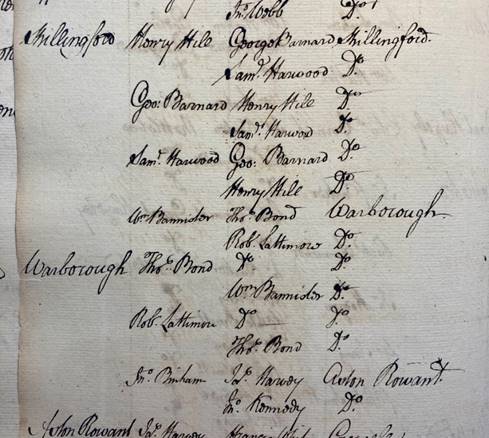 Jno. Webb Do.
Shillingford Henry Hill George Barnard Shillingford.
Saml. Harwood Do.
Geo: Barnard Henry Hill Do.
Saml. Harwood Do.
Saml. Harwood Geo: Barnard Do.
Henry Hill Do.
Wm Bannister Thos. Bond Warborough
Rob. Lattimore Do.
Warborough Thos. Bond Do. Do.
Wm Bannister Do.
Rob. Lattimore Do. Do.
Thos. Bond Do.
Jno. Binham Jos. Harvey Aston Rowant.
Jno. Kennedy Do.
Aston Rowant Jos. Harvey